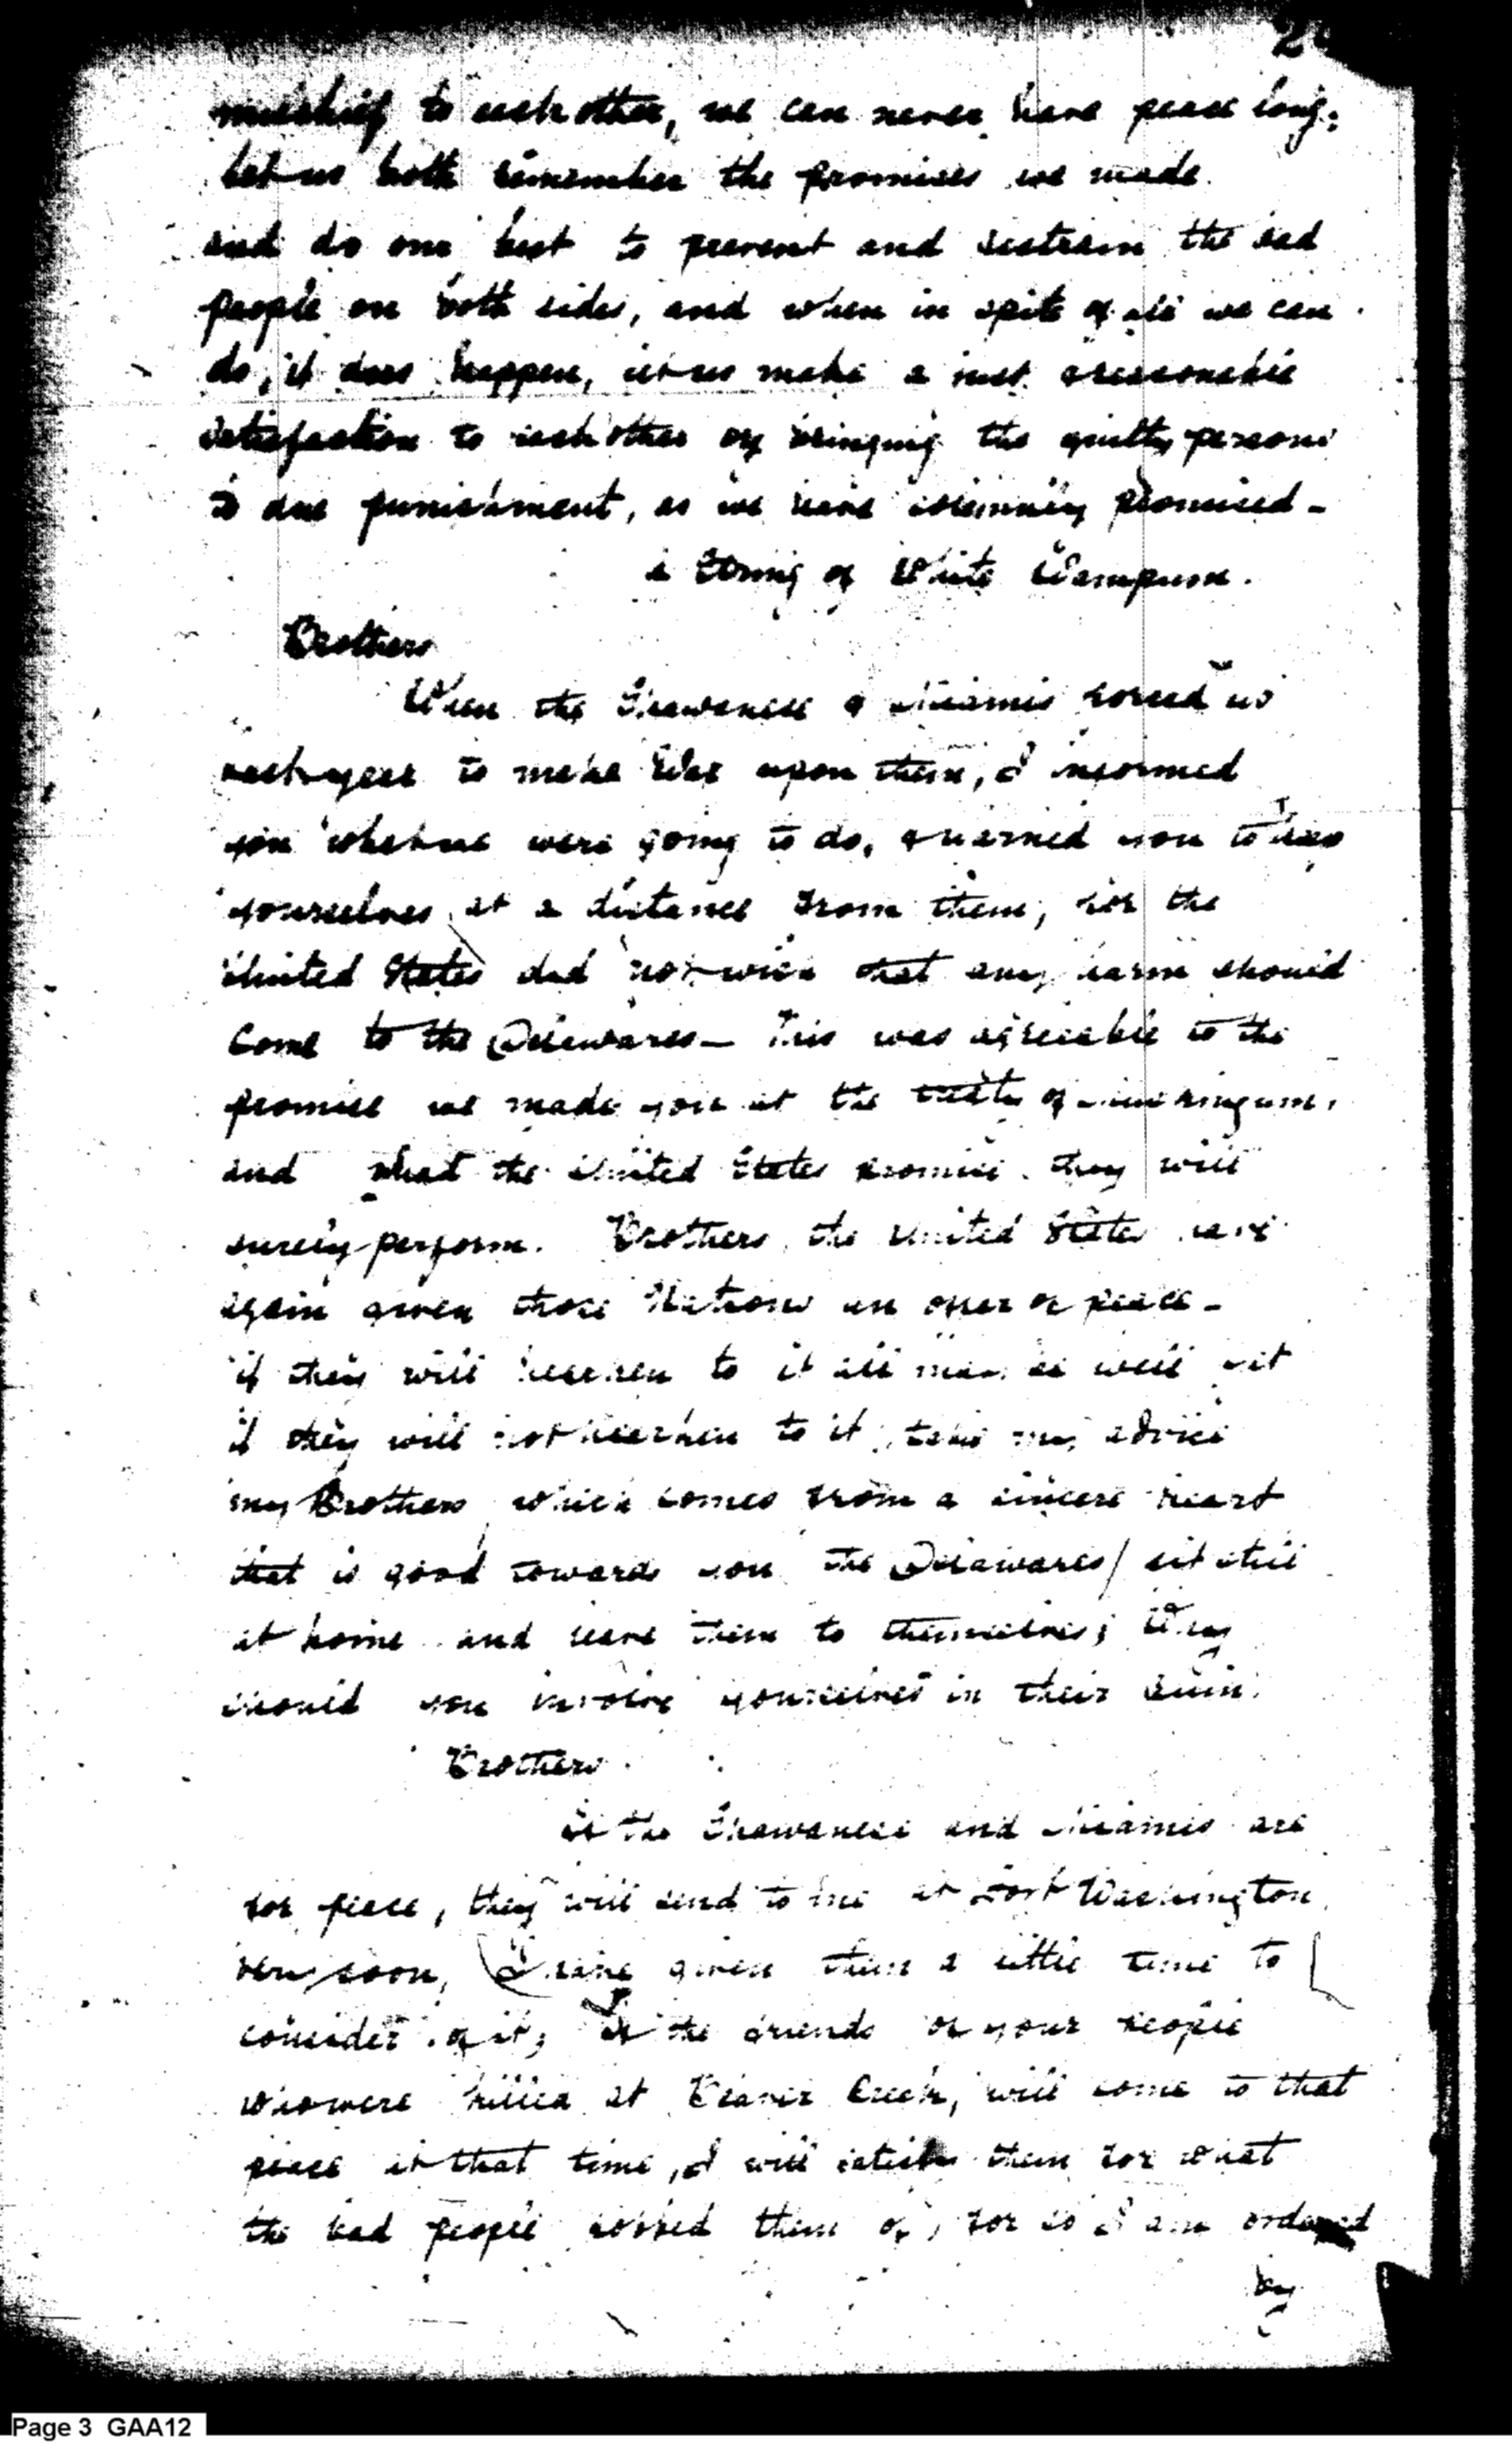 mischief to each other, we can never have peace long;
let us both remember the promises we made
and do our best to prevent and restrain the bad
people on both sides, and when in spite of all we can
do, it does happen, let us make a just & reasonable
satisfaction to each other by bringing the guilty persons
to due punishment, as we have solemnly promised -
A String of White Wampum.
Brothers
When the Shawanese & Miamis forced us
last year to make War upon them, I informed
you what we were going to do, & warned you to keep
yourselves at a distance from them, for the
United States did not wish that any harm should
Come to the Delewares - This was agreeable to the
promise we made you at the treaty of Muskingum,
and what the United States promise they will
surely perform. Brothers, the United States have
again given those Nations an offer of peace -
if they will hearken to it all may be well yet
if they will not hearken to it, take my advice
my Brothers which comes from a sincere heart
that is good towards you the Delawares/ sit still
at home and leave them to themselves; Why
should you involve yourselves in their ruin.
Brothers.
If the Shawanese and Miamis are
for peace, they will send to me at Fort Washington
very soon, I have given them a little time to
consider of it; If the friends of your people
who were killed at Beaver Creek, will come to that
place at that time, I will satisfy them for what
the bad people robbed them of, for so I am ordered
by
Page 3 GAA12